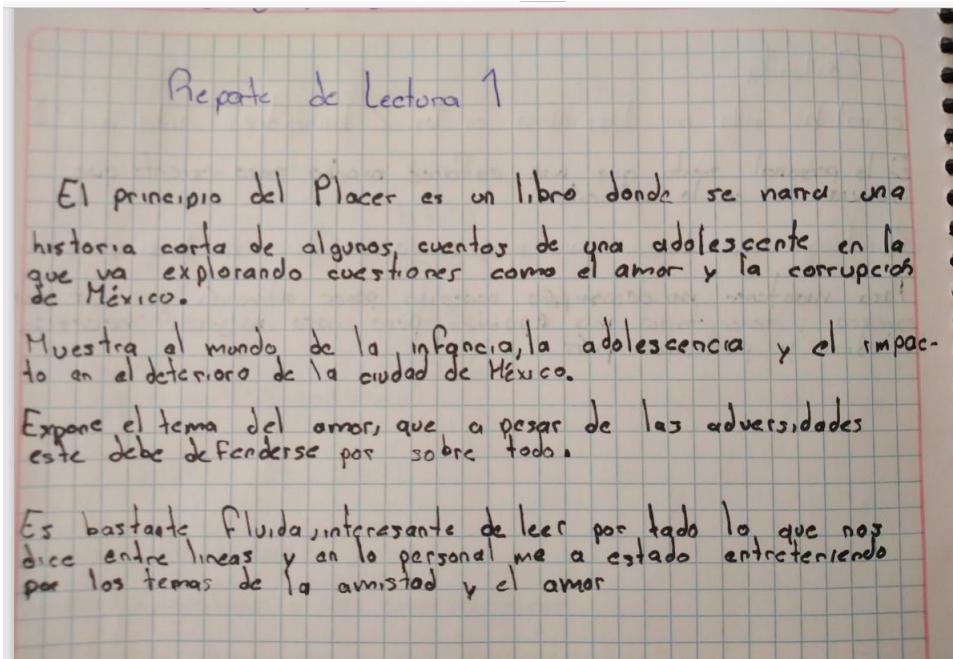 Reporte de Lectura 1
El principio del Placer es un libro donde se narra una
historia corta de algunos cuentos de una adolescente en la
que va explorando cuestiones como el amor y la corrupcion
de México.
Muestra el mundo de la infancia, la adolescencia y el impac-
to en el deterioro de la ciudad de México.
Expone el tema del amor, que a pesar de las adversidades
este debe defenderse por sobre todo.
Es bastante fluida, interesante de leer por todo lo que nos
dice entre lineas y en lo personal me a estado entreteniendo
por los temas de la amistad y el amor